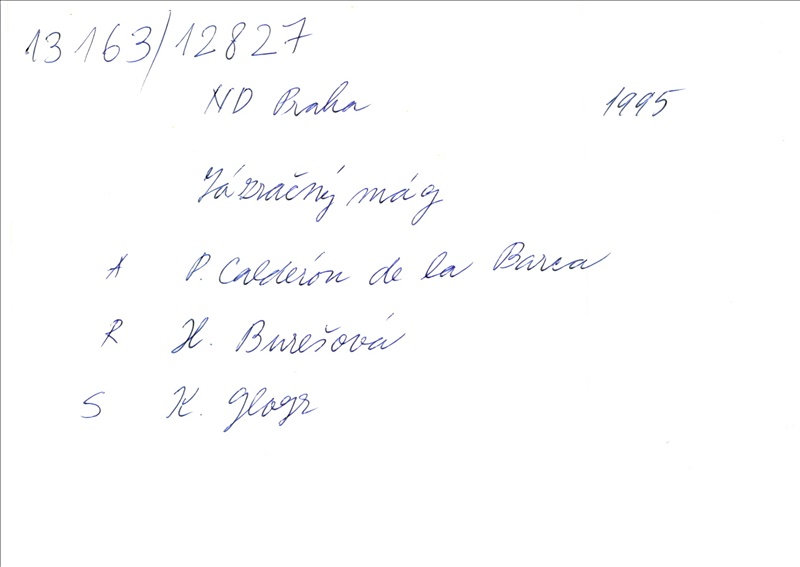 13163/12827
ND Praha 1995
Zázračný mág
A P. Calderón de la Barca
R H. Burešová
S K. Glogr